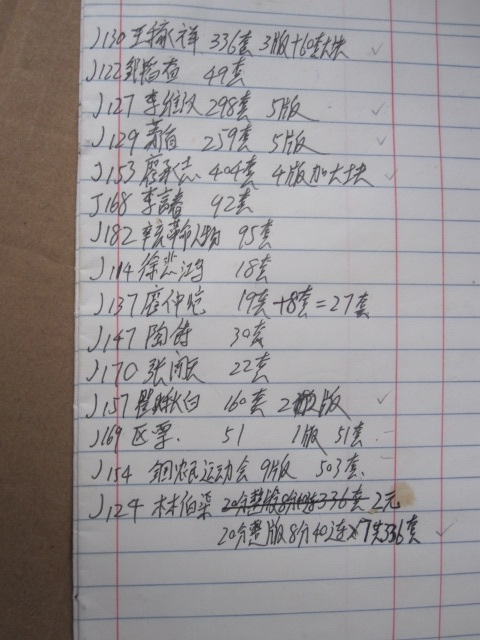 J130 王稼祥 336套 3版+60套大块
J122 邹韬奋 49套
J127 李维汉 298套 5版
J129 萧⁠ 259套 5版
J153 廖承志 404套 4版加大块
J168 李 92套
J182 辛亥革命人物 95套
J114 徐悲鸿 18套
J137 廖仲恺 19套+8套=27套
J147 陶铸 30套
J170 张闻天 22套
J157 瞿秋白 160套 2版
J169 区票. 51 1版 51套
J154 农民运动会 9版 503套
J124 林伯渠 336套 2元
20分整版8分40连 336套